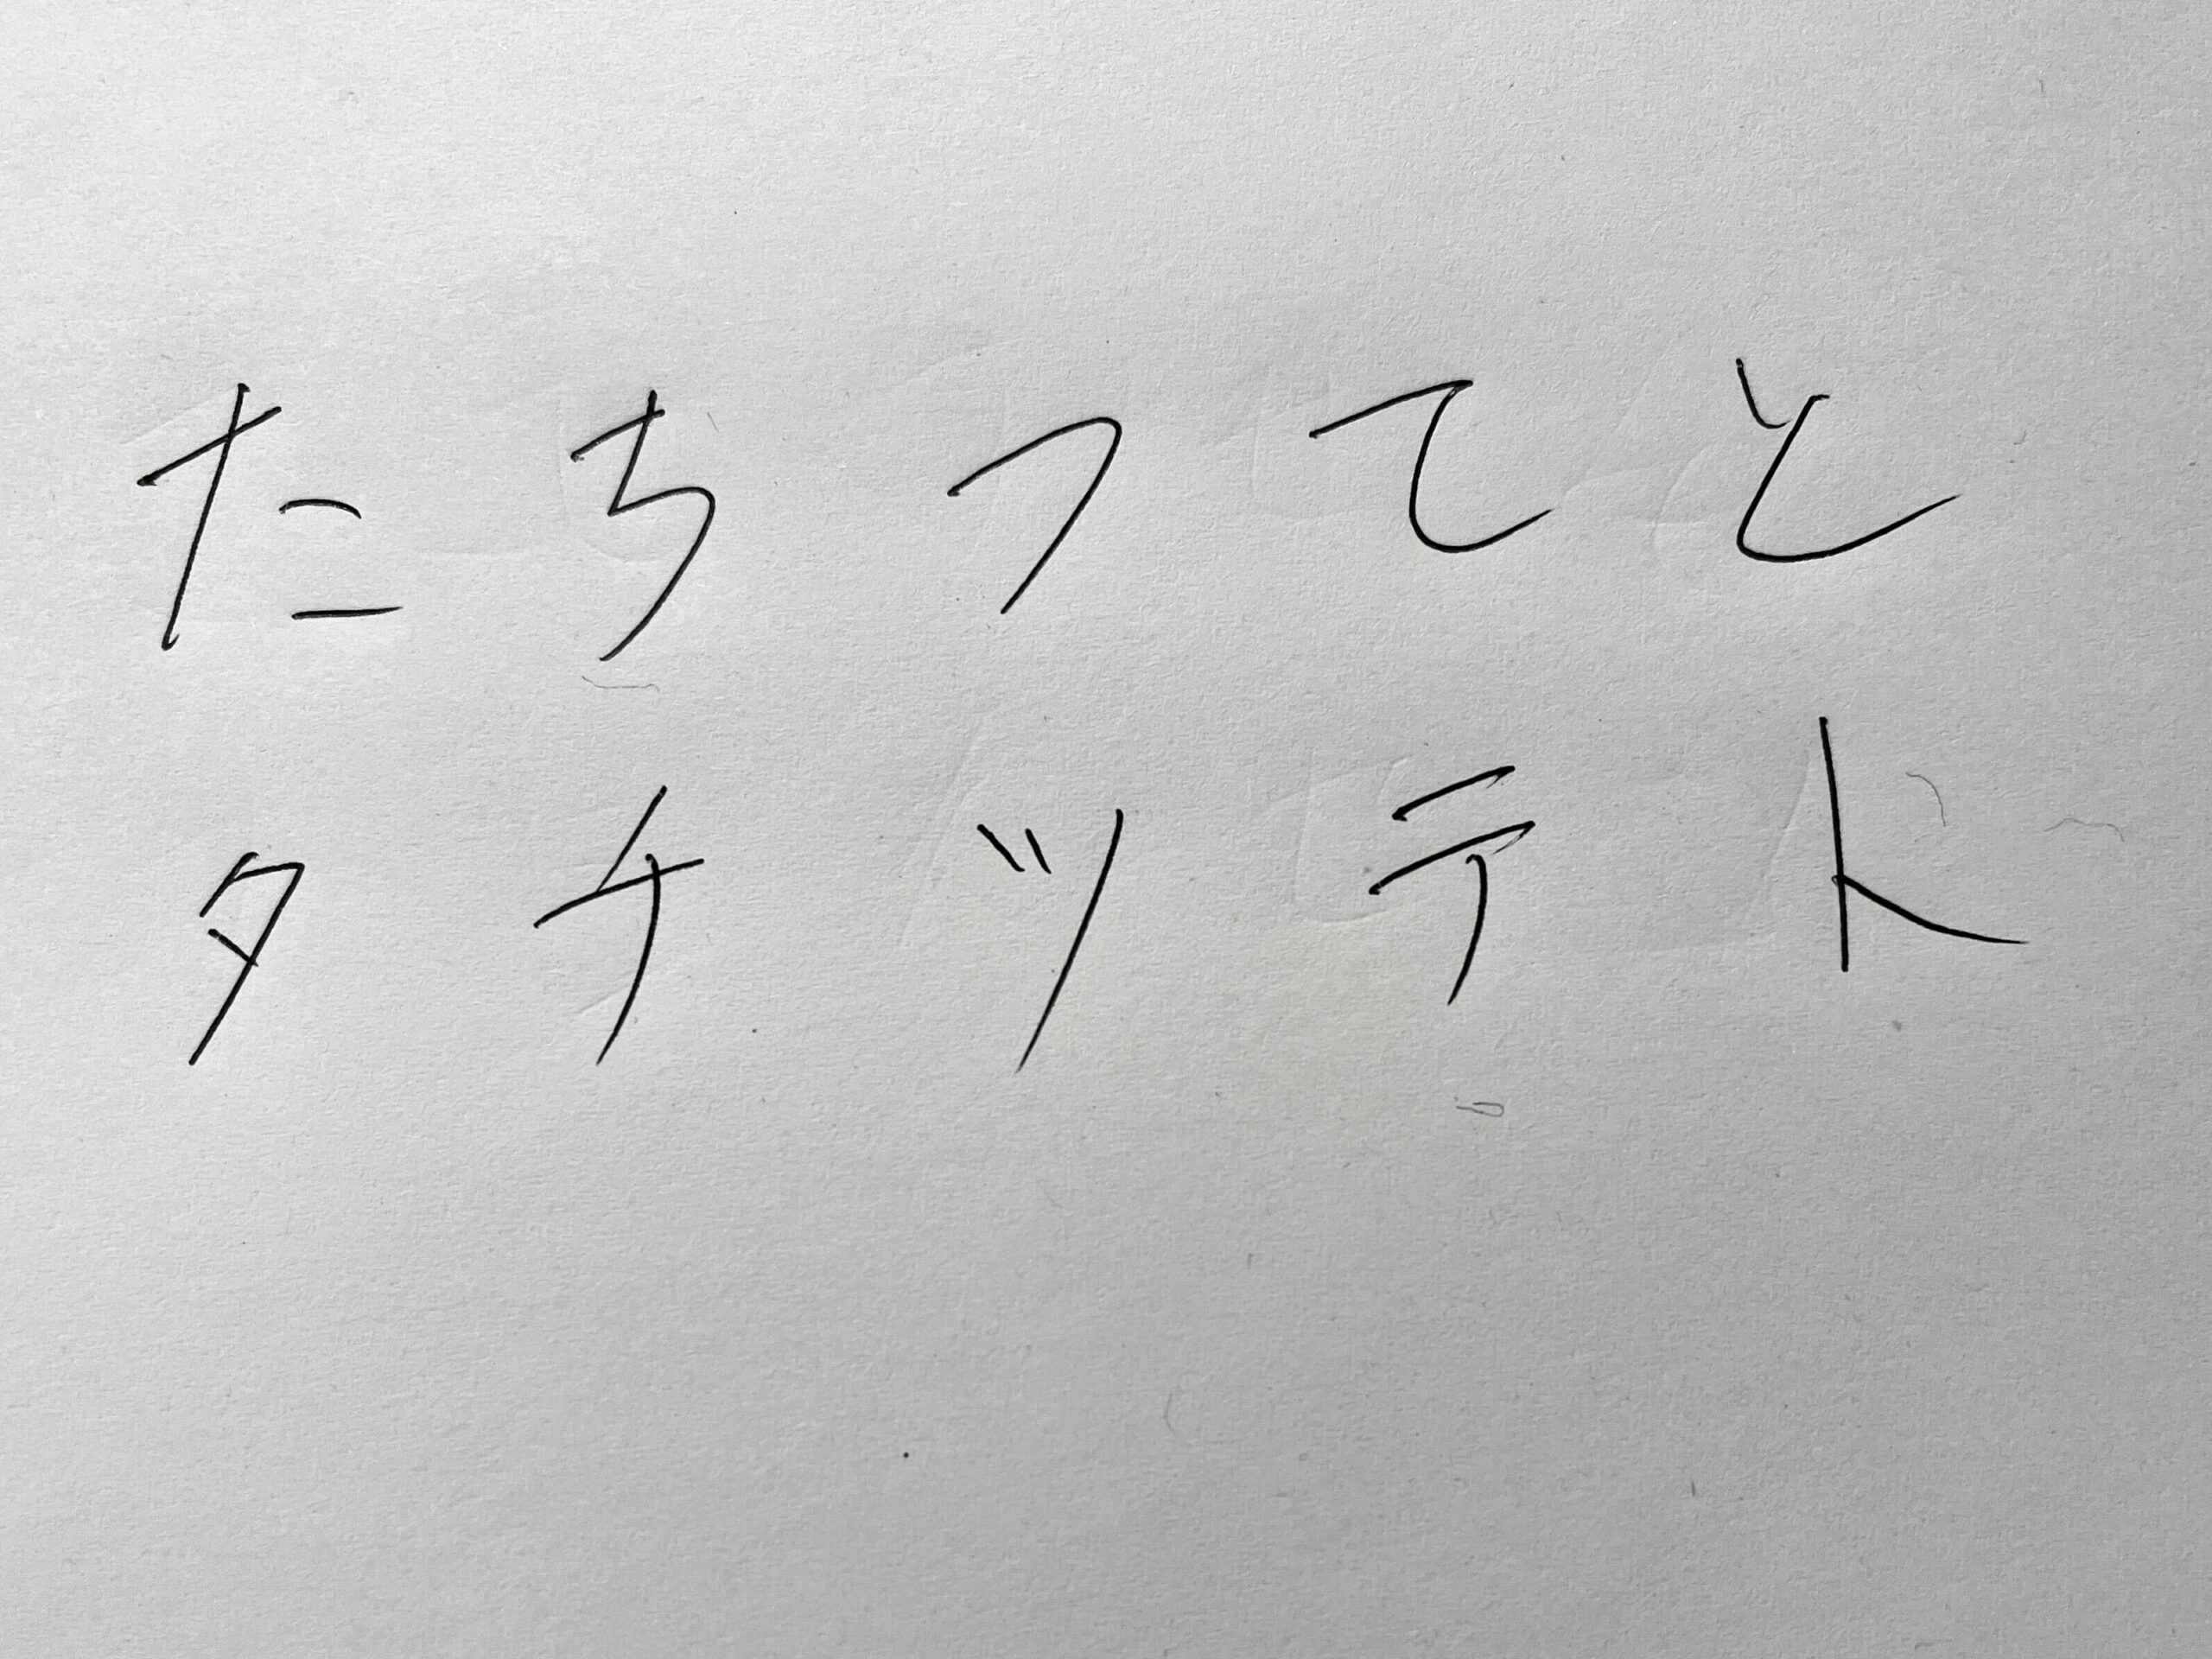 たちつてと
タチツテト